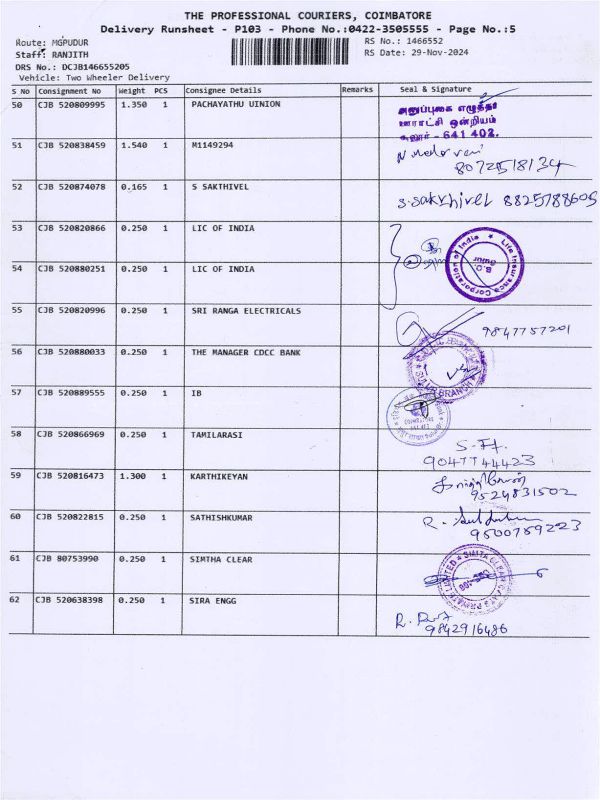 THE PROFESSIONAL COURIERS, COIMBATORE
Delivery Runsheet - P103 - Phone No.:0422-3505555 - Page No.:5
Route: MGPUDUR
Staff: RANJITH
DRS No.: DCJB146655205
Vehicle: Two Wheeler Delivery
RS No.: 1466552
RS Date: 29-Nov-2024
S No Consignment No Weight PCS Consignee Details Remarks Seal & Signature
50 CJB 520809995 1.350 1 PACHAYATHU UINION
ஊராட்சி ஒன்றியம்
சூலூர் - 641 402.
51 CJB 520838459 1.540 1 M1149294
52 CJB 520874078 0.165 1 S SAKTHIVEL S.Sakthivel 8825788605
53 CJB 520820866 0.250 1 LIC OF INDIA
Life Insurance Corporation of India
B.O.
Sulur
54 CJB 520880251 0.250 1 LIC OF INDIA
55 CJB 520820996 0.250 1 SRI RANGA ELECTRICALS 9847757201
56 CJB 520880033 0.250 1 THE MANAGER CDCC BANK
BRANCH
57 CJB 520889555 0.250 1 IB
58 CJB 520866969 0.250 1 TAMILARASI
9047744423
59 CJB 520816473 1.300 1 KARTHIKEYAN
9524831502
60 CJB 520822815 0.250 1 SATHISHKUMAR
9500759223
61 CJB 80753990 0.250 1 SIMTHA CLEAR
62 CJB 520638398 0.250 1 SIRA ENGG
9842916486